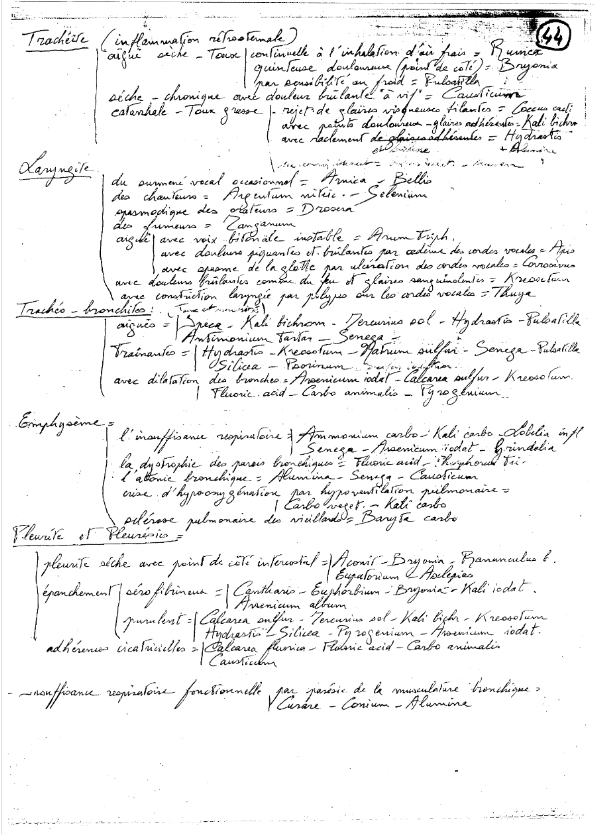 44
Trachéite (inflammation rétrosternale)
aigüe sèche - Toux continuelle à l'inhalation d'air frais = Rumex
quinteuse douloureuse (point de côté) = Bryonia
par sensibilité au froid = Pulsatilla
sèche - chronique avec douleur brûlante "à vif" = Causticum
catarrhale - Toux grasse - rejet de glaires visqueuses filantes = Coccus cacti
avec points douloureux - glaires adhérentes = Kali bichro
avec raclement de glaires adhérentes = Hydrastis
+ Alumine
Laryngite
du surmené vocal occasionnel = Arnica - Bellis
des chanteurs = Argentum nitric. - Selenium
spasmodique des orateurs = Drosera
des fumeurs = Manganum
aigüe avec voix bitonale instable = Arum triph.
avec douleurs piquantes et brûlantes par oedème des cordes vocales = Apis
avec spasme de la glotte par ulcération des cordes vocales = Corrosivus
avec douleurs brûlantes comme du feu et glaires sanguinolentes = Kreosotum
avec constriction laryngée par polypes sur les cordes vocales = Thuya
Trachéo-bronchites:
aigües = Ipeca - Kali bichrom - Mercurius sol - Hydrastis - Pulsatilla
Antimonium Tartar - Senega -
Traînantes = Hydrastis - Kreosotum - Natrum sulfur - Senega - Pulsatilla
Silicea - Psorinum -
avec dilatation des bronches = Arsenicum iodat - Calcarea sulfur - Kreosotum
Fluoric. acid - Carbo animalis - Pyrogenium.
Emphysème =
l'insuffisance respiratoire = Ammonium carbo - Kali carbo - Lobelia infl
Senega - Arsenicum iodat - Grindelia
la dystrophie des parois bronchiques = Fluoric acid - Phosphorus Tri
l'atonie bronchique = Alumina - Senega - Causticum
crise d'hypooxygénation par hypoventilation pulmonaire =
Carbo veget. - Kali carbo
sclérose pulmonaire des vieillards = Baryta carbo
Pleurite et Pleurésies =
pleurite sèche avec point de côté intercostal = Aconit - Bryonia - Ranunculus b.
Eupatorium - Asclepias
épanchement sérofibrineux = Cantharis - Euphorbium - Bryonia - Kali iodat.
Arsenicum album
purulent = Calcarea sulfur - Mercurius sol - Kali bichr - Kreosotum
Hydrastis - Silicea - Pyrogenium - Arsenicum iodat.
adhérences cicatricielles = Calcarea fluorica - Fluoric acid - Carbo animalis
Causticum
- insuffisance respiratoire fonctionnelle par parésie de la musculature bronchique =
Curare - Conium - Alumina